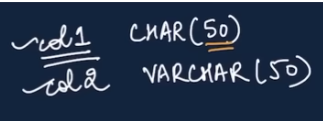 col1 CHAR(50)
col2 VARCHAR(50)